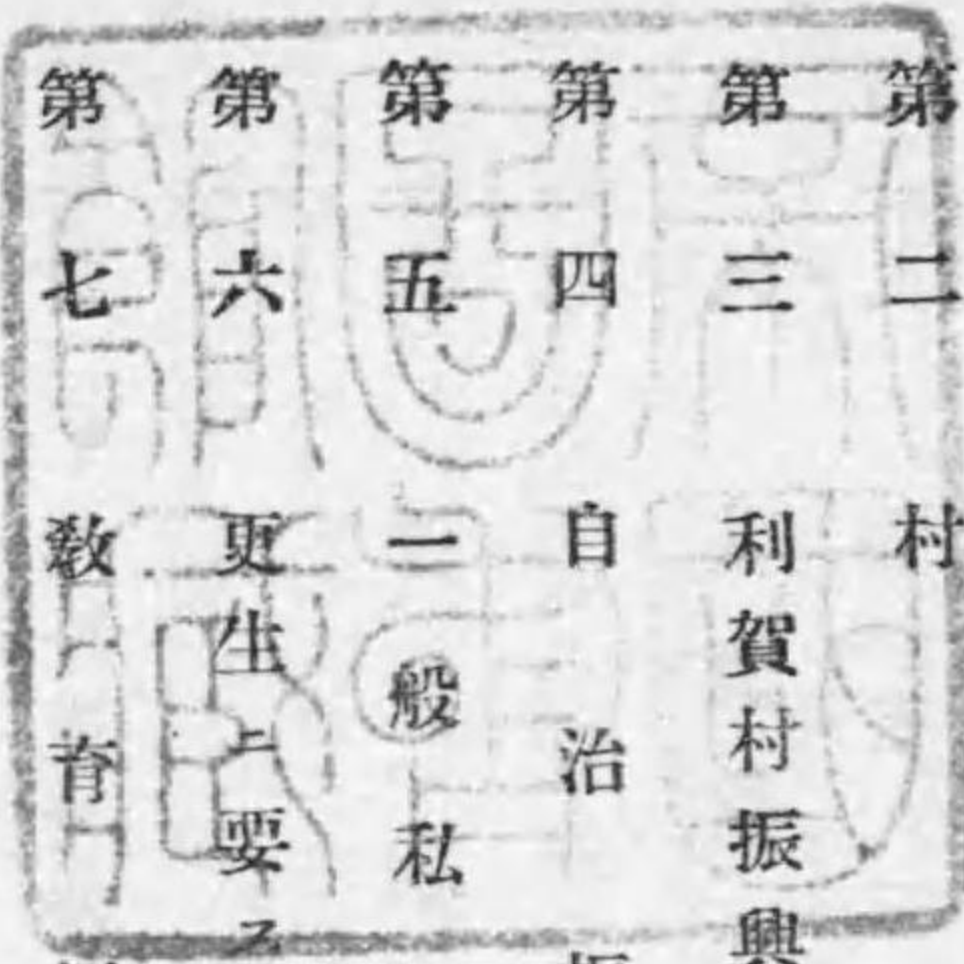 第二 村
第三 利賀村振興
第四 自治
第五 一般私
第六 更生ニ要ス
第七 教育